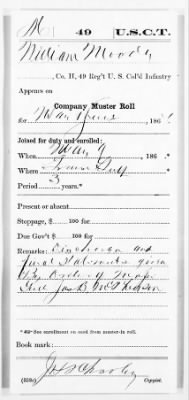 M | 49 | U.S.C.T.
William Moody
, Co. H, 49 Reg't U. S. Col'd Infantry
Appears on
Company Muster Roll
for May & June, 186
Joined for duty and enrolled:
When May 9, 186 .*
Where
Period 3 years.*
Present or absent
Stoppage, $ 100 for
Due Gov't $ 100 for
Remarks: Discharged and
final Statements given
By Order of Maj.
Genl Jas B McPherson
* See enrollment on card from muster-in roll.
Book mark:
(858c) Copyist.